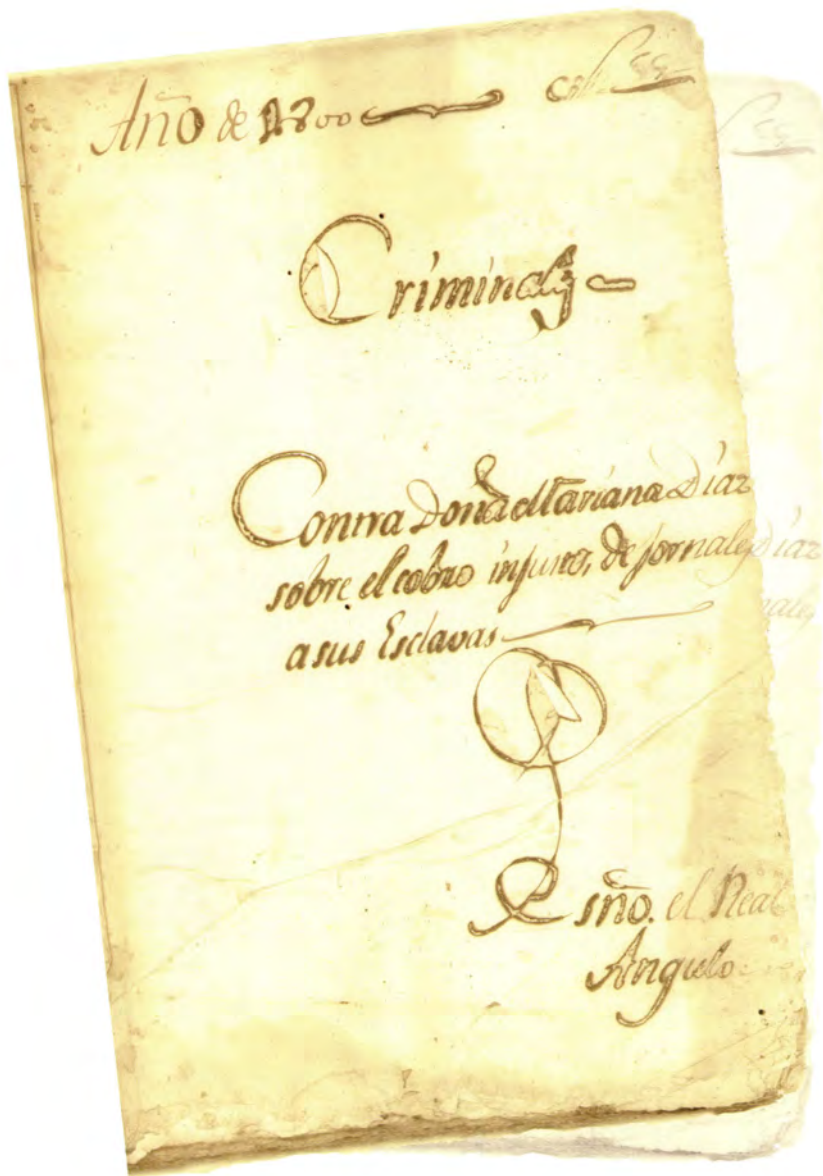 Año de 1800
Criminales
Contra Doña Mariana Diaz
sobre el cobro injusto, de jornales
a sus Esclavas
Esño. el Real
Angulo